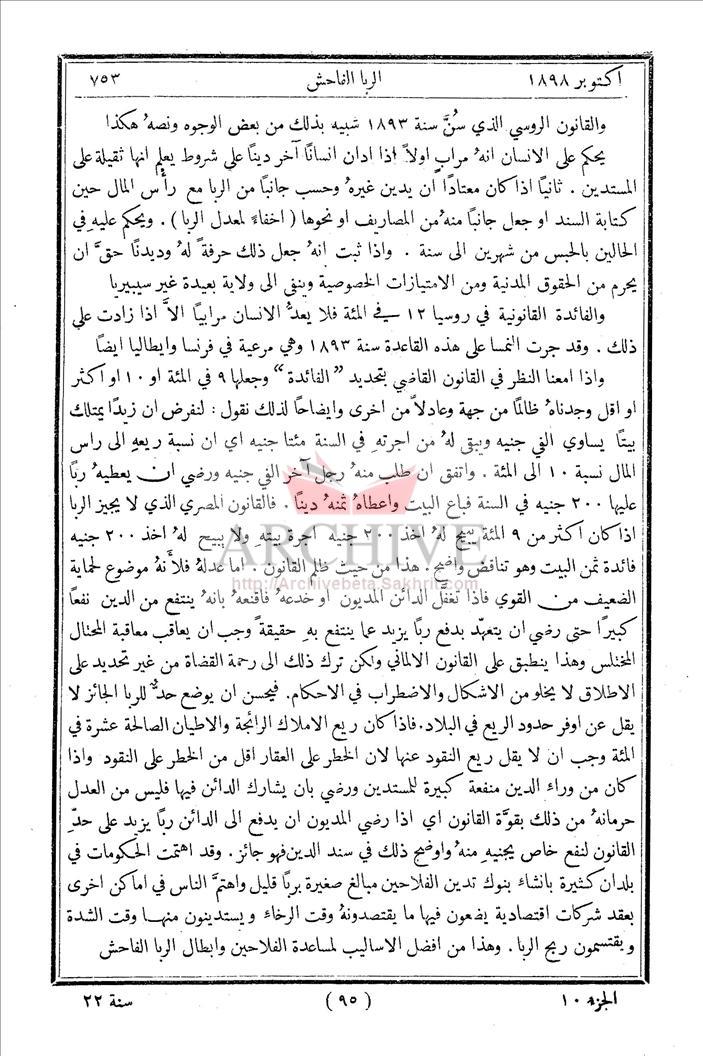 اكتوبر ١٨٩٨ الربا الفاحش ٧٥٣
والقانون الروسي الذي سُنَّ سنة ١٨٩٣ شبيه بذلك من بعض الوجوه ونصهُ هكذا
يحكم على الانسان انهُ مرابٍ اولاً اذا ادان انسانًا آخر دينًا على شروط يعلم انها ثقيلة على
المستدين . ثانيًا اذا كان معتادًا ان يدين غيرهُ وحسب جانبًا من الربا مع رأس المال حين
كتابة السند او جعل جانبًا منهُ من المصاريف او نحوها ( اخفاءً لمعدل الربا ) . ويحكم عليهِ في
الحالين بالحبس من شهرين الى سنة . واذا ثبت انهُ جعل ذلك حرفةً لهُ وديدنًا حقَّ ان
يحرم من الحقوق المدنية ومن الامتيازات الخصوصية وينفى الى ولاية بعيدة غير سيبيريا
والفائدة القانونية في روسيا ١٢ في المئة فلا يعدُّ الانسان مرابيًا الاَّ اذا زادت على
ذلك . وقد جرت النمسا على هذه القاعدة سنة ١٨٩٣ وهي مرعية في فرنسا وايطاليا ايضًا
واذا امعنا النظر في القانون القاضي بتحديد "الفائدة" وجعلها ٩ في المئة او ١٠ او اكثر
او اقل وجدناهُ ظالمًا من جهة وعادلاً من اخرى وايضاحًا لذلك نقول : لنفرض ان زيدًا يمتلك
بيتًا يساوي الفي جنيه ويبقى لهُ من اجرتهِ في السنة مئتا جنيه اي ان نسبة ريعهِ الى راس
المال نسبة ١٠ الى المئة . واتفق ان طلب منهُ رجل آخر الفي جنيه ورضي ان يعطيهُ ربًا
عليها ٢٠٠ جنيه في السنة فباع البيت واعطاهُ ثمنهُ دينًا . فالقانون المصري الذي لا يجيز الربا
اذا كان اكثر من ٩ المئة يبيح لهُ اخذ ٢٠٠ جنيه اجرة بيتهِ ولا يبيح لهُ اخذ ٢٠٠ جنيه
فائدة ثمن البيت وهو تناقض واضح . هذا من حيث ظلم القانون . اما عدلهُ فلأنهُ موضوع لحماية
الضعيف من القوي فاذا تغفَّل الدائن المديون او خدعهُ فاقنعهُ بانهُ ينتفع من الدين نفعًا
كبيرًا حتى رضي ان يتعهّد بدفع ربًا يزيد عما ينتفع بهِ حقيقةً وجب ان يعاقب معاقبة المحتال
المختلس وهذا ينطبق على القانون الالماني ولكن ترك ذلك الى رحمة القضاة من غير تحديد على
الاطلاق لا يخلو من الاشكال والاضطراب في الاحكام . فيحسن ان يوضع حدٌّ للربا الجائز لا
يقل عن اوفر حدود الريع في البلاد . فاذا كان ريع الاملاك الرائجة والاطيان الصالحة عشرة في
المئة وجب ان لا يقل ريع النقود عنها لان الخطر على العقار اقل من الخطر على النقود واذا
كان من وراء الدين منفعة كبيرة للمستدين ورضي بان يشارك الدائن فيها فليس من العدل
حرمانهُ من ذلك بقوَّة القانون اي اذا رضي المديون ان يدفع الى الدائن ربًا يزيد على حدّ
القانون لنفع خاص يجنيهِ منهُ واوضح ذلك في سند الدين فهو جائز . وقد اهتمت الحكومات في
بلدان كثيرة بانشاء بنوك تدين الفلاحين مبالغ صغيرة بربًا قليل واهتمَّ الناس في اماكن اخرى
بعقد شركات اقتصادية يضعون فيها ما يقتصدونهُ وقت الرخاء ويستدينون منها وقت الشدة
ويقتسمون ربح الربا . وهذا من افضل الاساليب لمساعدة الفلاحين وابطال الربا الفاحش
الجزء ١٠ ( ٩٥ ) سنة ٢٢
ARCHIVE
http://Archivebeta.Sakhrit.com